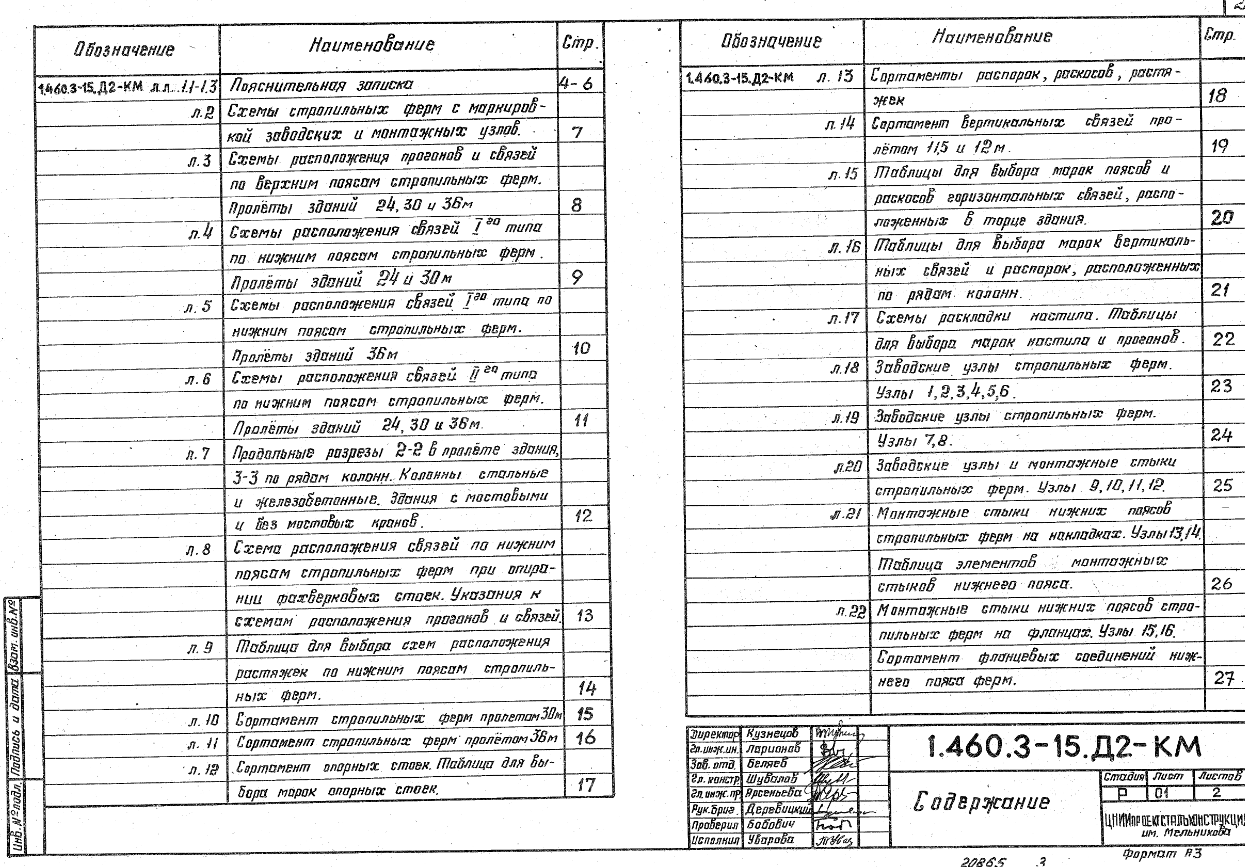 2
Обозначение Наименование Стр.
1.460.3-15.Д2-КМ л.л. 1.1-1.3 Пояснительная записка 4-6
л.2 Схемы стропильных ферм с маркиров-
кой заводских и монтажных узлов. 7
л.3 Схемы расположения прогонов и связей
по верхним поясам стропильных ферм.
Пролёты зданий 24, 30 и 36м 8
л.4 Схемы расположения связей I го типа
по нижним поясам стропильных ферм.
Пролёты зданий 24 и 30м 9
л.5 Схемы расположения связей I го типа по
нижним поясам стропильных ферм.
Пролёты зданий 36м 10
л.6 Схемы расположения связей II го типа
по нижним поясам стропильных ферм.
Пролёты зданий 24, 30 и 36м. 11
л.7 Продольные разрезы 2-2 в пролёте здания,
3-3 по рядам колонн. Колонны стальные
и железобетонные. Здания с мостовыми
и без мостовых кранов. 12
л.8 Схема расположения связей по нижним
поясам стропильных ферм при опира-
нии фахверковых стоек. Указания к
схемам расположения прогонов и связей. 13
л.9 Таблица для выбора схем расположения
растяжек по нижним поясам стропиль-
ных ферм. 14
л.10 Сортамент стропильных ферм пролетом 30м 15
л.11 Сортамент стропильных ферм пролётом 36м 16
л.12 Сортамент опорных стоек. Таблица для вы-
бора марок опорных стоек. 17
Обозначение Наименование Стр.
1.460.3-15.Д2-КМ л.13 Сортаменты распорок, раскосов, растя-
жек 18
л.14 Сортамент вертикальных связей про-
лётом 11,5 и 12м. 19
л.15 Таблицы для выбора марок поясов и
раскосов горизонтальных связей, распо-
ложенных в торце здания. 20
л.16 Таблицы для выбора марок вертикаль-
ных связей и распорок, расположенных
по рядам колонн. 21
л.17 Схемы раскладки настила. Таблицы
для выбора марок настила и прогонов. 22
л.18 Заводские узлы стропильных ферм.
Узлы 1,2,3,4,5,6. 23
л.19 Заводские узлы стропильных ферм.
Узлы 7,8. 24
л.20 Заводские узлы и монтажные стыки
стропильных ферм. Узлы 9,10,11,12. 25
л.21 Монтажные стыки нижних поясов
стропильных ферм на накладках. Узлы 13,14.
Таблица элементов монтажных
стыков нижнего пояса. 26
л.22 Монтажные стыки нижних поясов стро-
пильных ферм на фланцах. Узлы 15,16.
Сортамент фланцевых соединений ниж-
него пояса ферм. 27
Инв. № подл. Подпись и дата Взам. инв. №
Директор Кузнецов
Гл.инж.ин. Ларионов
Зав. отд. Беляев
Гл. констр. Шувалов
Гл. инж. пр. Арсеньева
Рук. бриг. Деревицкий
Проверил Бабович
Исполнил Уварова
1.460.3-15.Д2-КМ
Содержание
Стадия Лист Листов
Р 01 2
ЦНИИПРОЕКТСТАЛЬКОНСТРУКЦИЯ
им. Мельникова
20865 3
Формат А3